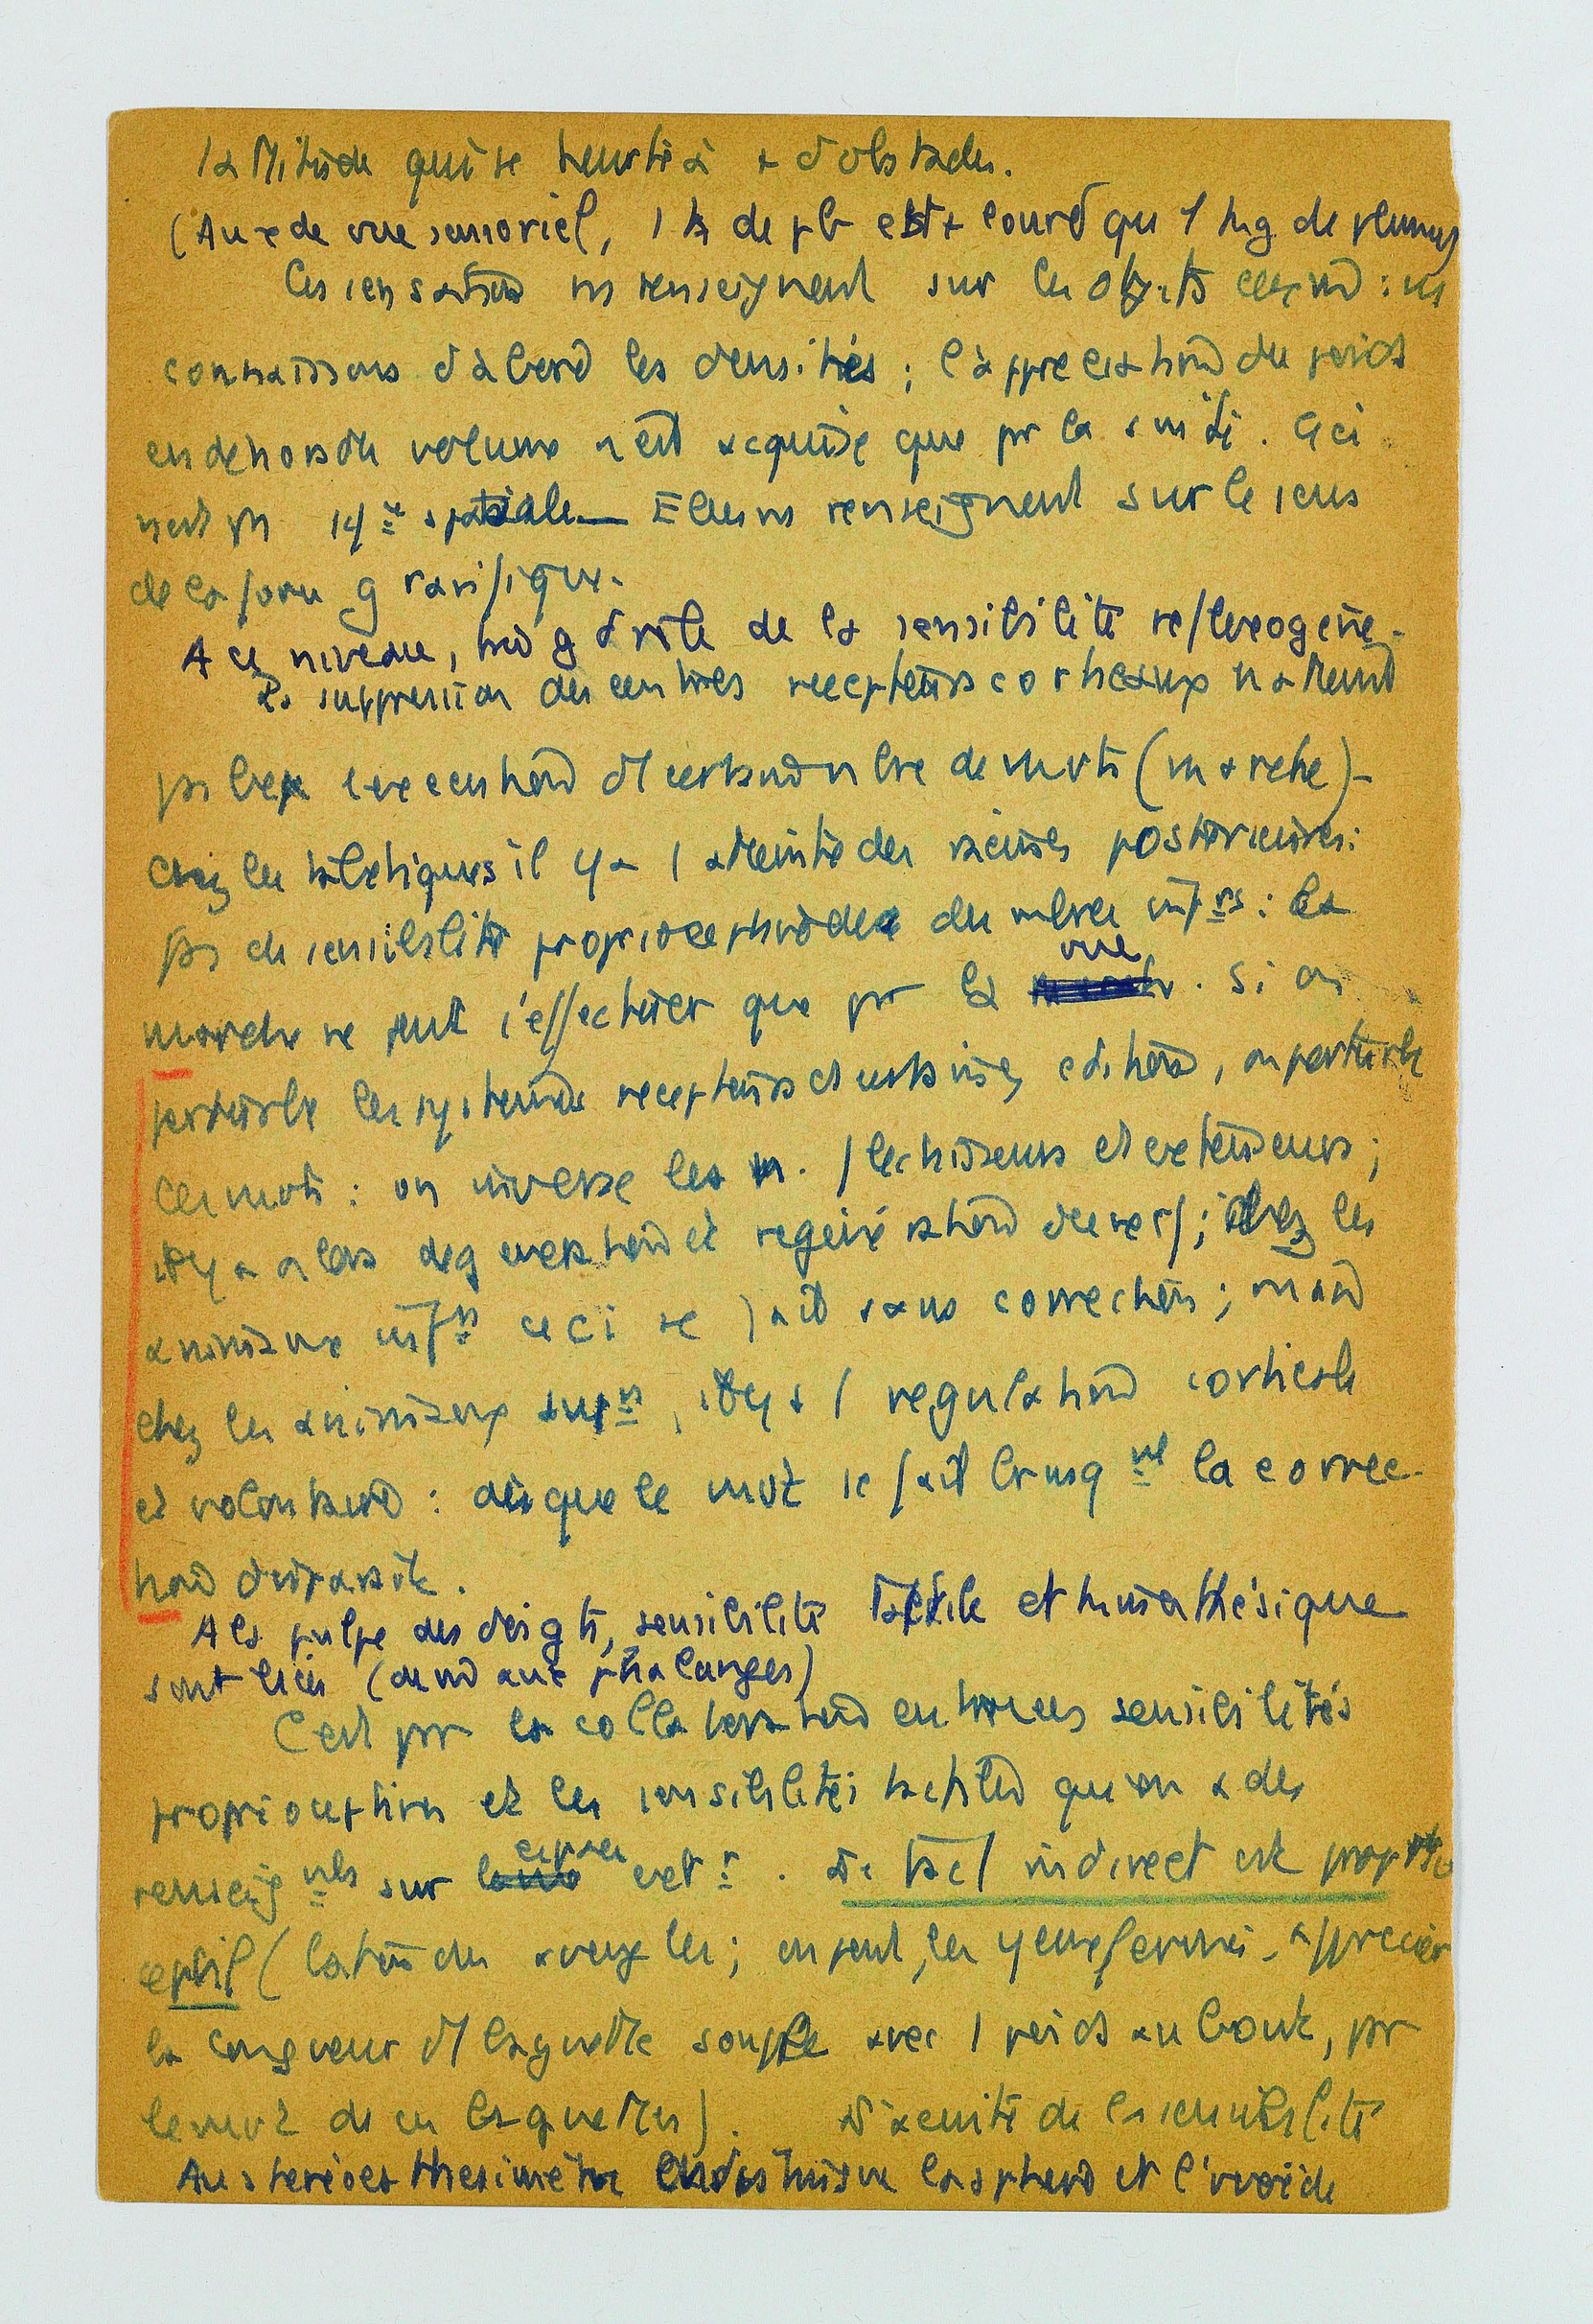 qui se heurte à + d'obstacles.
(Au de vue sensoriel, 1 k de pb est + lourd qu 1 kg de plumes)
Les sensations ns renseignent sur les objets :
connaissons d'abord les densités ; l'appréciation du poids
en dehors du volume n'est acquise que pr la suite. Ceci
n'est ps spatiale — Elles ns renseignent sur le sens
de la gravifique.
A ce niveau, g d rôle de la sensibilité reflexogène.
La suppression des centres recepteurs corticaux n'atteind
ps l'execution de nbre de mvts (marche) -
Chez les tabetiques il y a 1 atteinte des racines posterieures :
ps de sensibilité proprioceptive des mbres infrs : la
marche ne peut s'effectuer que pr la vue. Si on
perturbe les systemes recepteurs , on perturbe
les mvts : on inverse les m. flechisseurs et extenseurs ;
il y a alors degeneration et regeneration des nerfs ; chez les
animaux infrs ceci se fait sans correction ;
chez les animaux suprs, il y a 1 regulation corticale
et volontaire : dès que le mvt se fait brusqmt la correc-
tion disparait.
A la pulpe des doigts, sensibilité tactile et kinesthésique
sont liées ( aux phalanges)
C'est pr la collaboration entre les sensibilités
proprioceptives et les sensibilités tactiles qu'on a des
renseigmts sur espace extr. Le tact indirect est proprio
ceptif (baton des aveugles ; on peut, les yeux fermés, apprecier
la longueur d'1 baguette souple avec 1 poids au bout, pr
le mvt de ces baguettes). L'acuité de la sensibilité
Au stereoesthesimètre on distingue la sphere et l'ovoïde